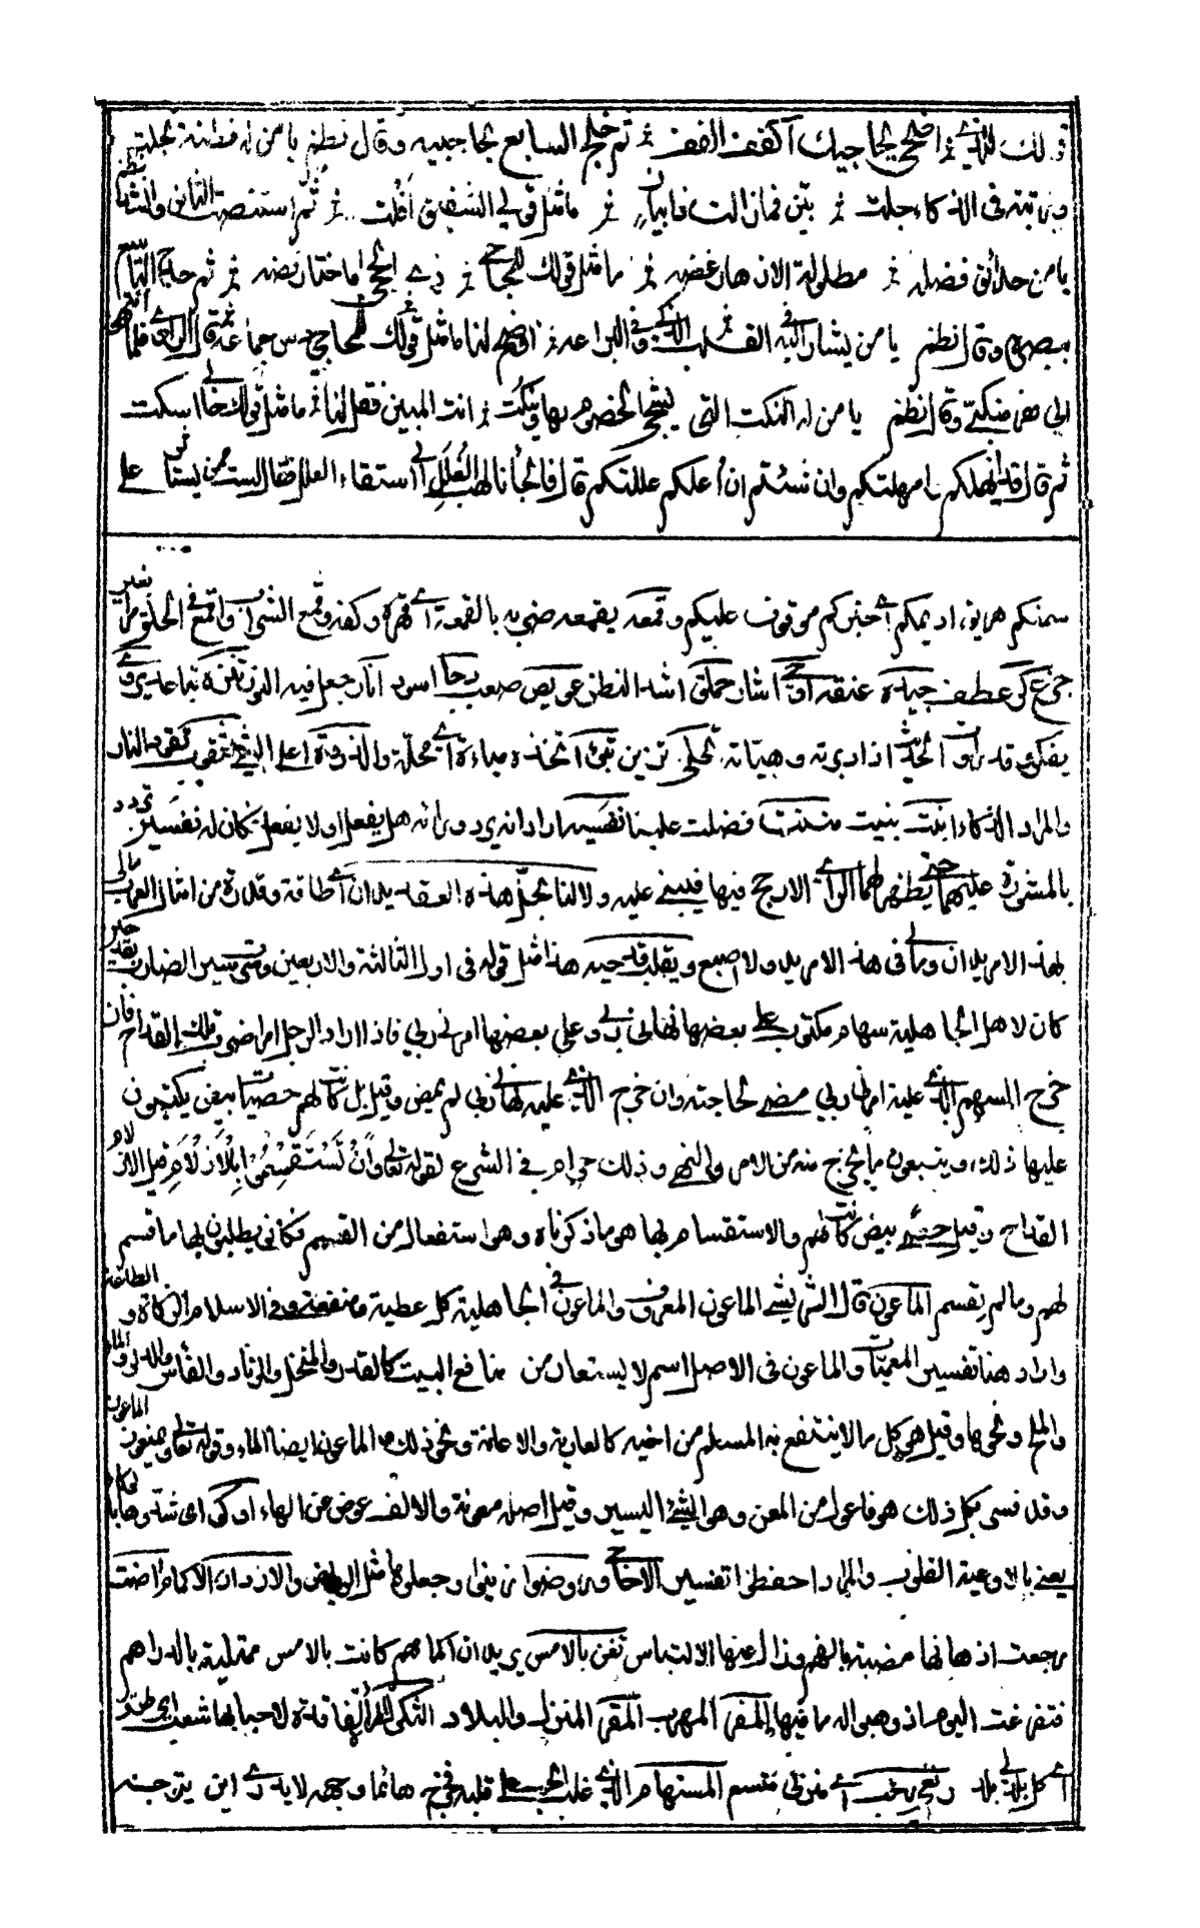 قولك للذي اضحى يحاجيك اكفف اكفف ثم خلج السابع بحاجبيه وقال نظم يا من له فطنة تجلت
ورتبة في الذكاء جلت بين فما زلت ذا بيان ما مثل قولي الشقيق افلت ثم استنصت الثامن وانشد نظم
يا من حدائق فضله مطلولة الازهار غضه ما مثل قولك للمحاجي ذي الحجى ما اختار فضه ثم حدج التاسع
ببصره وقال نظم يا من يشار اليه في القلب الذكي وفي البراعه اوضح لنا ما مثل قولك للمحاجي دس جماعه قال الراوي فلما انتهى
الي هز منكبي وقال نظم يا من له النكت التي يشجي الخصوم بها وينكت انت المبين فقل لنا ما مثل قولك خالي اسكت
ثم قال قد انهلتكم وامهلتكم وان شئتم ان اعلكم عللتكم قال فالجأنا لهب الغلل الى استقاء العلل فقال لست كمن يستأثر على
سمنكم هريق اديمكم اي خبزكم موقوف عليكم وقمعه يقمعه ضربه بالقمعة اي قهره وكفه وقمع الشراب واقمع في الحلق مر بغير
جرع كر عطف جيده عنقه اوحى اشار حملق اشد النظر عويص صعب دجا اسود انار جعل فيه النور
يفكرى قد الحيث اذا دريته وهيأته تحلى تزين تبوئ اتخذه مباءة اي محلة والذروة اعلى الشيء
والمراد الذكاء ابنت بنيت فضلت علينا نفسيه اراد انه يردد رائه هل يفعل او لا يفعل فكان له نفسين تردد
بالمشورة عليهما حتى يظهر لهما الرأي الارجح فيها فيبني عليه ولالنا بحل هذه العقد يدان اي طاقة وقدرة من امثال العرب مالي
بهذا الامر يدان وما لي في هذا الامر يد ولا اصبع ويقلب قدحيه هذا مثل قوله في اول الثالثة والاربعين
كان لاهل الجاهلية سهام مكتوب على بعضها نهاني ربي وعلى بعضها امرني ربي فاذا اراد الرجل امرا ضرب تلك القداح فان
خرج السهم الذي عليه امرني ربي مضى لحاجته وان خرج الذي عليه نهاني ربي لم يمض وقيل بل كانت لهم حصيات بيض يكتبون
عليها ذلك ويتبعون ما يخرج منه من الامر والنهي وذلك حرام في الشرع لقوله تعالى وَاَنْ تَسْتَقْسِمُوْا بِالْاَزْلَامِ قيل الازلام
القداح وقيل حصى بيض كانت لهم والاستقسام بها هو ما ذكرناه وهو استفعال من القسم فكانوا يطلبون بها ما قسم
لهم وما لم يقسم الماعون قال الشريشي الماعون المعروف والماعون في الجاهلية كل عطية ومنفعة وفي الاسلام الزكاة والطاعة
واراد هنا تفسير المعميات والماعون في الاصل اسم لا يستعار من منافع البيت كالقدر والمنخل والزناد والفأس والدلو والماء
والملح ونحوها وقيل هو كل ما لا ينتفع به المسلم من اخيه كالعارية والاعانة ونحو ذلك والماعون ايضا الماء وقوله تعالى ويمنعون الماعون
وقد فسر بكل ذلك هو فاعول من المعن وهو الشيء اليسير وقيل اصله معونة والالف عوض عن الهاء اوكوا اي شدوها
يعني بالاوعية القلوب والمراد احفظوا تفسير الاحاجي وروضوا زينوا وجعلوه مثل الرياض والاردان الاكمام اضت
رجعت اذهانها مضيئة بالفهم وزال عنها الالتباس تغن بالامس يريد ان اكمامهم كانت بالامس ممتلية بالدراهم
فتفرغت اليوم اذ وهبوا له ما فيها المفر المهرب المقر المنزل والبلاد الثكل لاحيا بها شعب اي طريق
اي كل بلد لي بلد ربعي رحب اي منزلي متسع المستهام الذي غلب الحب على قلبه فخرج هائما وجهه لا يدري اين يتوجه